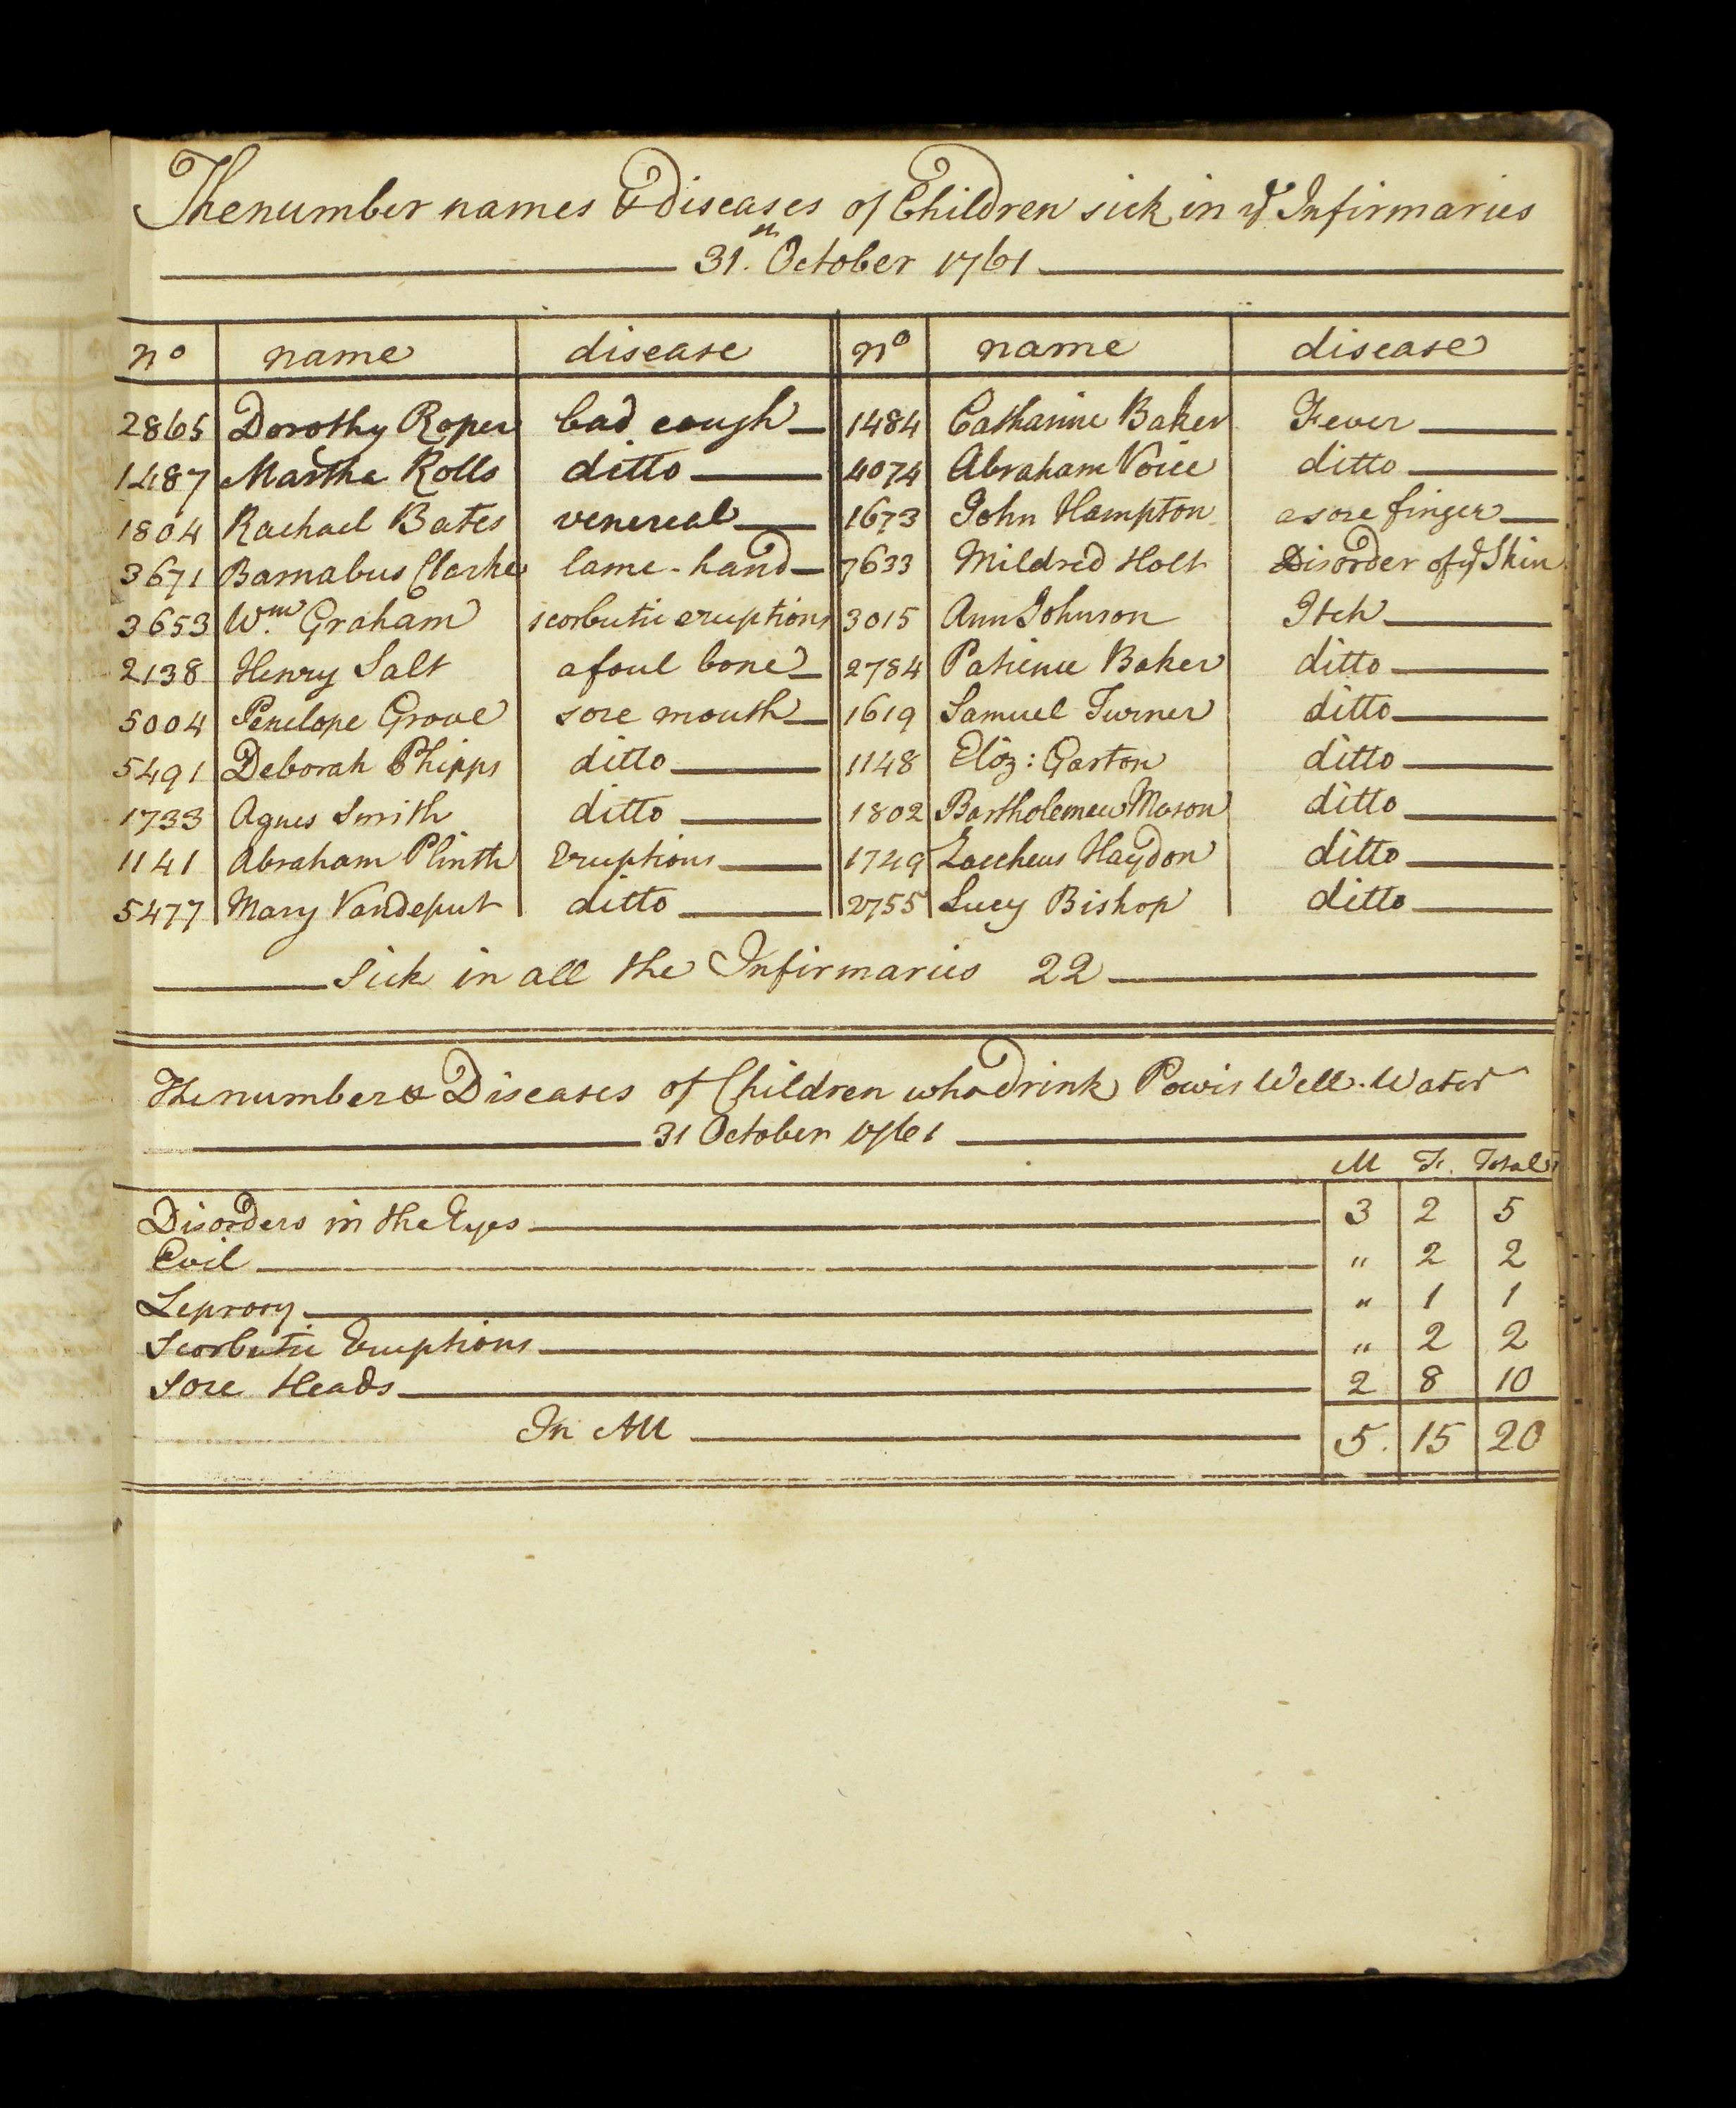 The number names & diseases of Children sick in ye Infirmaries
31st October 1761
no name disease no name disease
2865 Dorothy Roper bad cough 1484 Catharine Baker Fever
1487 Martha Rolls ditto 4074 Abraham Voice ditto
1804 Rachael Bates venereal 1673 John Hampton a sore finger
3671 Barnabus Clarke lame-hand 7633 Mildred Holt Disorder of ye Skin
3653 Wm Graham scorbutic eruptions 3015 Ann Johnson Itch
2138 Henry Salt a foul bone 2784 Patience Baker ditto
5004 Penelope Grove sore mouth 1619 Samuel Turner ditto
5491 Deborah Phipps ditto 1148 Eliz: Garton ditto
1733 Agnes Smith ditto 1802 Bartholemew Mason ditto
1141 Abraham Plinth Eruptions 1749 Zaccheus Haydon ditto
5477 Mary Vandeput ditto 2755 Lucy Bishop ditto
Sick in all the Infirmaries 22
The number & Diseases of Children who drink Powis Well-Water
31 October 1761
M F. Total
Disorders in the Eyes 3 2 5
Evil " 2 2
Leprosy " 1 1
Scorbutic Eruptions " 2 2
Sore Heads 2 8 10
In All 5. 15 20